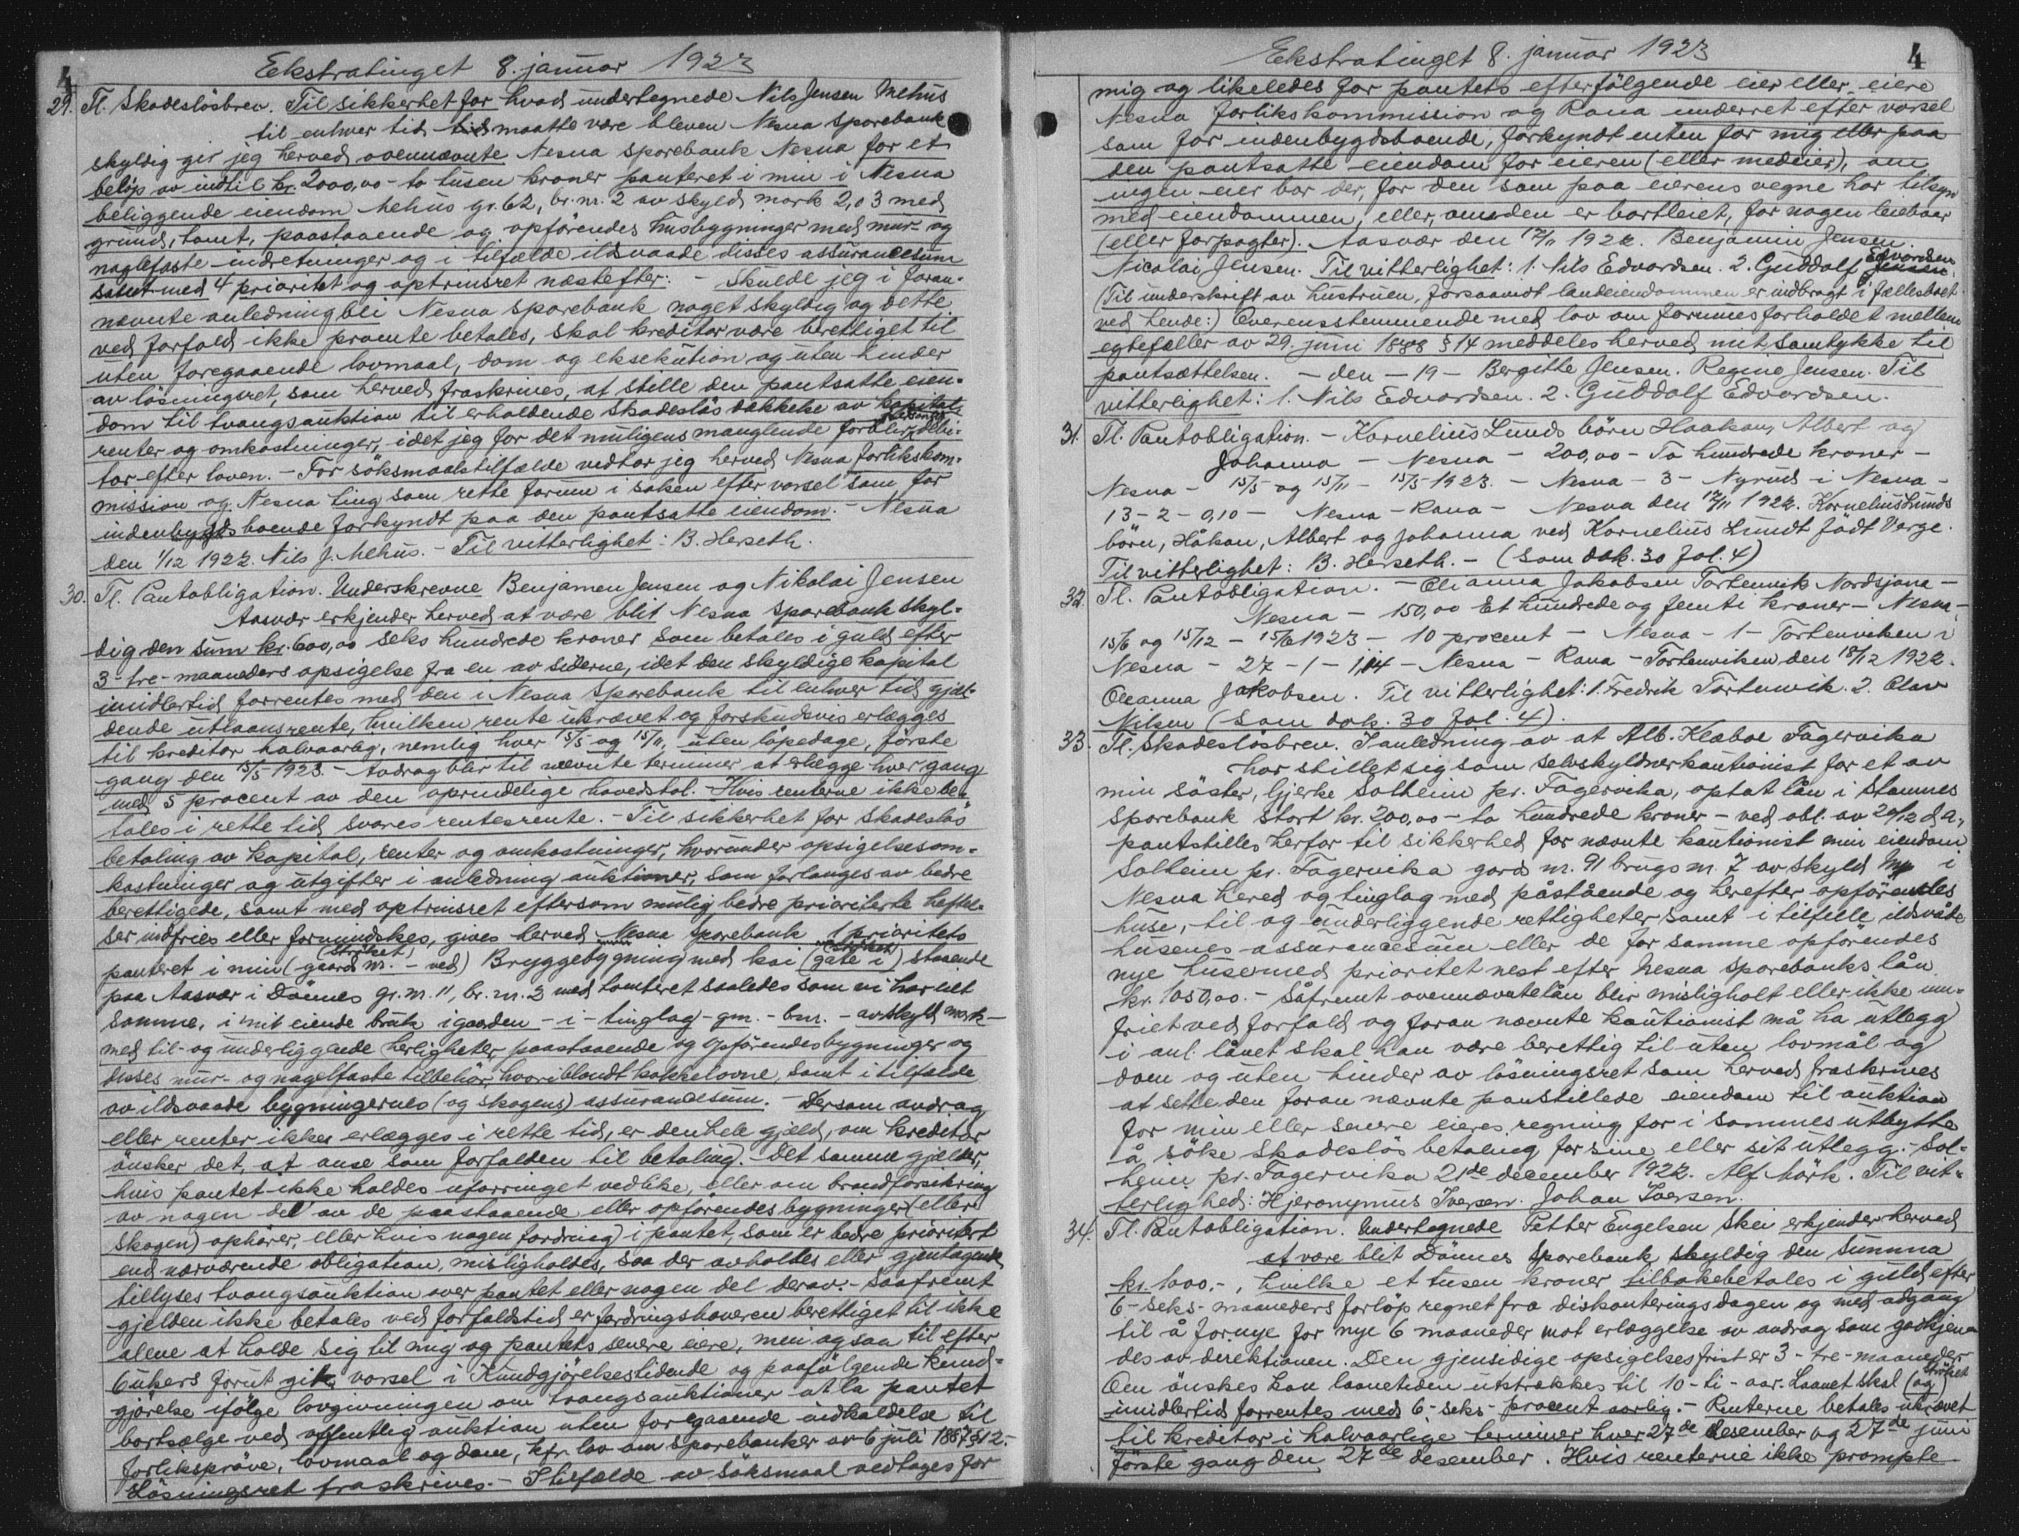 4
Ekstratinget 8. januar 1923
29. Tl. Skadesløsbrev. Til sikkerhet for hvad undertegnede Nils Jensen Mehus
til enhver tid tid maatte være bleven Nesna sparebank
skyldig gir jeg herved ovennævnte Nesna sparebank Nesna for et
beløp av indtil kr. 2000,00 - to tusen kroner panteret i min i Nesna
beliggende eiendom Mehus gr. 62, br. nr. 2 av skyld mark 2,03 med
grund, tomt, paastaaende og opførendes husbygninger med mur- og
naglefaste indretninger og i tilfælde ildsvaade disses assurancesum
samt med 4 prioritet og optrinsret næstefter: - Skulde jeg i foran-
nævnte anledning bli Nesna sparebank noget skyldig og dette
ved forfald ikke promte betales, skal kreditor være berettiget til
uten foregaaende lovmaal, dom og eksekution og uten hinder
av løsningsret, som herved fraskrives, at stille den pantsatte eien-
dom til tvangsauktion til erholdende skadesløs dækkelse av kapital,
renter og omkostninger, idet jeg for det muligens manglende forblir personlig debi-
tor efter loven. - For søksmaalstilfælde vedtar jeg herved Nesna forlikskom-
mission og Nesna ting som rette forum i saken efter varsel som for
indenbygds boende forkyndt paa den pantsatte eiendom. - Nesna
den 1/12 1922. Nils J. Mehus. - Til vitterlighet: B. Herseth.
30. Tl. Pantobligation. Underskrevne Benjamen Jensen og Nikolai Jensen
Aasvær erkjender herved at være blit Nesna sparebank skyl-
dig den sum kr. 600,00 seks hundrede kroner som betales i guld efter
3 - tre - maaneders opsigelse fra en av siderne, idet den skyldige kapital
imidlertid forrentes med den i Nesna sparebank til enhver tid gjæl-
dende utlaansrente, hvilken rente ukrævet og forskudsvis erlægges
til kreditor halvaarlig, nemlig hver 15/5 og 15/11, uten løpedage, første
gang den 15/5 1923. - Avdrag blir til nævnte terminer at erlægge hver gang
med 5 procent av den oprindelige hovedstol. Hvis renterne ikke be-
tales i rette tid svares rentesrente. - Til sikkerhet for skadesløs
betaling av kapital, renter og omkostninger, hvorunder opsigelsesom-
kostninger og utgifter i anledning auktioner, som forlanges av bedre
berettigede, samt med optrinsret eftersom mulig bedre prioriterte heftel-
ser indfries eller formindskes, gives herved Nesna sparebank 1 prioritets
panteret i min (gaards nr. - ved) (strøket) Bryggebygning med kai (gate i) (strøket) staaende
paa Aasvær i Dönnes gr. nr. 11, br. nr. 2 med tomteret saaledes som vi har leiet
samme, i mit eiende bruk i gaarden - i - tinglag - gnr. - bnr. - av skyld mark -
med til- og underliggende herligheter, paastaaende og opførendes bygninger og
disses mur- og nagelfaste tilbehør, hvoriblandt kakkelovne, samt i tilfælde
av ildsvaade bygningernes (og skogens) assurancesum. - Dersom avdrag
eller renter ikke erlægges i rette tid, er den hele gjæld, om kreditor
ønsker det, at anse som forfalden til betaling. Det samme gjælder,
hvis pantet ikke holdes uforringet vedlike, eller om brandforsikring
av nogen del av de paastaaende eller opførendes bygninger (eller
skogen) ophører, eller hvis nogen fordring i pantet, som er bedre prioritert
end nærværende obligation, misligholdes, saa der avholdes eller gjentagende
tillyses tvangsauktion over pantet eller nogen del derav. - Saafremt
gjelden ikke betales ved forfaldstid er fordringshaveren berettiget til ikke
alene at holde sig til mig og pantets senere eiere, men ogsaa til efter
6 ukers forut git varsel i Kundgjørelsestidende og paafølgende kund-
gjørelse ifølge lovgivningen om tvangsauktioner at la pantet
bortsælge ved offentlig auktion uten foregaaende indkaldelse til
forliksprøve, lovmaal og dom, kfr. lov om sparebanker av 6 juli 1887 § 12.-
Løsningsret fraskrives. - I tilfælde av søksmaal vedtages for
Ekstratinget 8. januar 1923
4
mig og likeledes for pantets efterfølgende eier eller eiere
Nesna forlikskommission og Rana underret efter varsel
som for indenbygdsboende, forkyndt enten for mig eller paa
den pantsatte eiendom for eieren (eller medeier), om
ingen eier bor der, for den som paa eierens vegne har tilsyn
med eiendommen, eller, om den er bortleiet, for nogen leieboer
(eller forpagter). Aasvær den 17/11 1922. Benjamin Jensen.
Nicolai Jensen. Til vitterlighet: 1. Nils Edvardsen. 2. Guddolf Jensen. Edvardsen
(Til underskrift av hustruen, forsaavidt landeiendommen er indbragt i fællesboet
ved hende:) Overensstemmende med lov om formuesforholdet mellem
egtefæller av 29. juni 1888 § 14 meddeles herved mit samtykke til
pantsættelsen. - den - 19 - Bergitte Jensen. Regine Jensen. Til
vitterlighet: 1. Nils Edvardsen. 2. Guddolf Edvardsen.
31. Tl. Pantobligation. - Kornelius Lunds börn Haakon, Albert og
Johanna - Nesna - 200,00 - To hundrede kroner -
Nesna - 15/5 og 15/11 - 15/5 1923. - Nesna - 3 - Nyrud i Nesna -
13 - 2 - 0,10 - Nesna - Rana - Nesna den 17/11 1922. Kornelius Lunds
börn, Håkon, Albert og Johanna ved Kornelius Lundt født Verge.
Til vitterlighet: B. Herseth. - (Som dok. 30 fol. 4)
32. Tl. Pantobligation. - Oleanna Jakobsen Tortenvik Nordsjona -
Nesna - 150,00 Et hundrede og femti kroner - Nesna -
15/6 og 15/12 - 15/6 1923 - 10 procent - Nesna - 1 - Tortenviken i
Nesna - 27 - 1 - 1,14 - Nesna - Rana - Tortenviken den 18/12 1922.
Oleanna Jakobsen. Til vitterlighet: 1. Fredrik Tortenvik. 2. Olav
Nilsen (Som dok. 30 fol. 4).
33. Tl. Skadesløsbrev. I anledning av at Alb. Kleboe Fagervika
har stillet sig som selvskyldnerkautionist for et av
min søster, Gjerke Solheim pr. Fagervika, optat lån i Stamnes
Sparebank stort kr. 200,00 - to hundrede kroner - ved obl. av 20/12 d.a.,
pantstilles herfor til sikkerhed for nævnte kautionist min eiendom
Solheim pr. Fagervika gards nr. 91 brugs nr. 7 av skyld i
Nesna hered og tinglag med påstående og herefter opførendes
huse, til og underliggende rettigheter samt i tilfelle ildsvåde
husenes assurancesum eller de for samme opförendes
nye huse med prioritet nest efter Nesna Sparebanks lån
kr. 1050,00. - Såfremt ovennævnte lån blir misligholt eller ikke inn-
friet ved forfald og foran nævnte kautionist må ha utlegg
i anl. lånet skal han være berettig til uten lovmål og
dom og uten hinder av løsningsret som herved fraskrives
at sette den foran nævnte panstillede eiendom til auktion
for min eller senere eieres regning for i sammes utbytte
å söke skadesløs betaling for sine eller sit utlegg. - Sol-
heim pr. Fagervika 21de december 1922. Alf Mörk. Til vit-
terlighed: Hjeronymus Iversen. Johan Iversen.
34. Tl. Pantobligation. Undertegnede Petter Engelsen Skei erkjender herved
at være blit Dönnes Sparebank skyldig den Summa
kr. 1000.-, hvilke et tusen kroner tilbakebetales i guld efter
6 - seks - maaneders forløp regnet fra diskonteringsdagen og med adgang
til å fornye for nye 6 maaneder mot erlæggelse av avdrag som godkjen-
des av direktionen. Den gjensidige opsigelsesfrist er 3 - tre - maaneder
Om ønskes kan laanetiden utstrækkes til 10 - ti - aar. Laanet skal (og) strøket
imidlertid forrentes med 6 - seks - procent aarlig. - Renterne betales ukrævet
til kreditor i halvaarlige terminer hver 27de desember og 27de juni
første gang den 27de desember. Hvis renterne ikke prompte